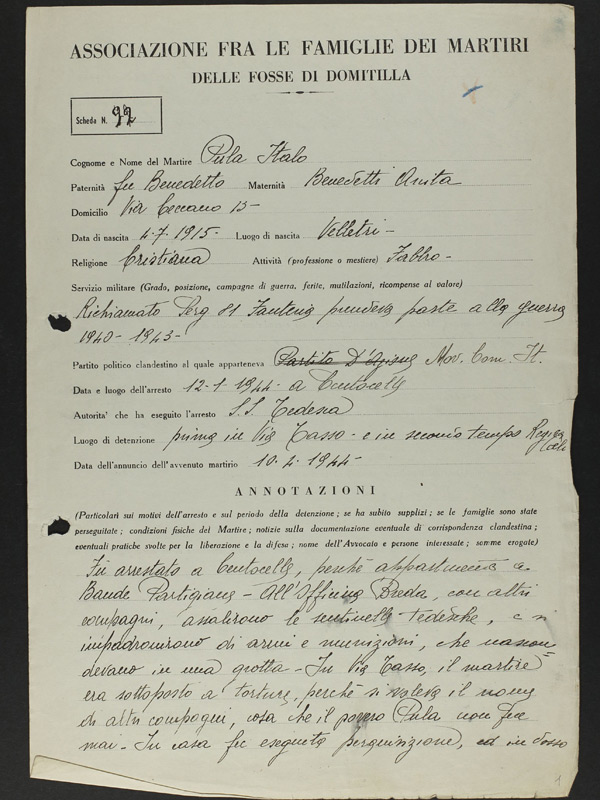 ASSOCIAZIONE FRA LE FAMIGLIE DEI MARTIRI
DELLE FOSSE DI DOMITILLA
Scheda N. 22
Cognome e Nome del Martire Pula Italo
Paternità fu Benedetto Maternità Benedetti Anita
Domicilio Via Ceccano 13-
Data di nascita 4.7.1915- Luogo di nascita Velletri-
Religione Cristiana Attività (professione o mestiere) Fabbro-
Servizio militare (Grado, posizione, campagne di guerra, ferite, mutilazioni, ricompense al valore)
Richiamato Serg 81 Fanteria prendeva parte alla guerra
1940-1943-
Partito politico clandestino al quale apparteneva Partito D'Azione Mov. Com. It.
Data e luogo dell'arresto 12-1-1944- a Centocelle
Autorità che ha eseguito l'arresto S.S. Tedesca
Luogo di detenzione prima in Via Tasso- e in secondo tempo Regina Coeli
Data dell'annuncio dell'avvenuto martirio 10.4.1944-
ANNOTAZIONI
(Particolari sui motivi dell'arresto e sul periodo della detenzione; se ha subito supplizi; se le famiglie sono state
perseguitate; condizioni fisiche del Martire; notizie sulla documentazione eventuale di corrispondenza clandestina;
eventuali pratiche svolte per la liberazione e la difesa; nome dell'Avvocato e persone interessate; somme erogate)
Fu arrestato a Centocelle, perchè appartenente a
Bande Partigiane- All'Officina Breda, con altri
compagni, assalirono le sentinelle tedesche, e si
impadronirono di armi e munizioni, che nascon=
devano in una grotta- In Via Tasso, il martire
era sottoposto a torture, perchè si voleva il nome
di altri compagni, cosa che il povero Pula non fece
mai- In casa fu eseguita perquisizione, ed in dosso
1